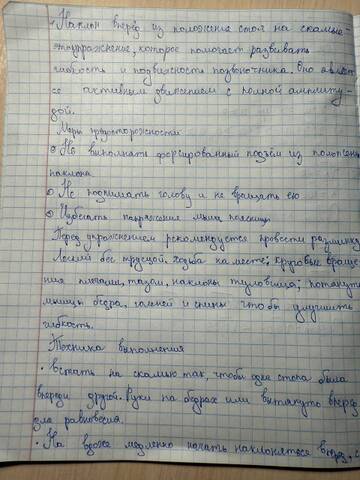 Наклон вперёд из положения стоя на скамье-
это упражнение, которое помогает развивать
гибкость и подвижность позвоночника. Оно являет
ся активным движением с полной амплиту-
дой.
Меры предосторожности
Не выполнять форсированный подъём из положения
наклона
Не поднимать голову и не вращать ею
Избегать напряжение мышц поясницы
Перед упражнением рекомендуется провести разминку
Лёгкий бег трусцой, ходьба на месте; круговые враще
ния плечами, тазом, наклоны туловища; потянуть
мышцы бедра, голней и спины чтобы улучшить
гибкость.
Техника выполнения
• встать на скамью так, чтобы одна стопа была
впереди другой. Руки на бедрах или вытянуто вперёд
для равновесия.
• На вдохе медленно начать наклоняться вперёд, с